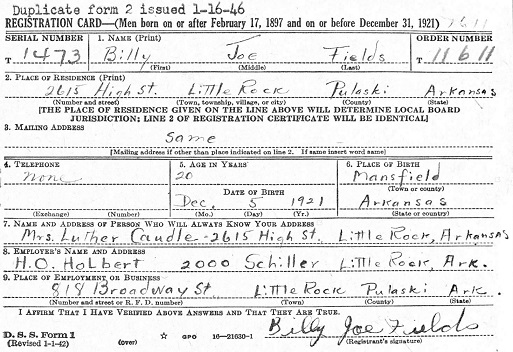 Duplicate form 2 issued 1-16-46
REGISTRATION CARD—(Men born on or after February 17, 1897 and on or before December 31, 1921)
SERIAL NUMBER 1. NAME (Print) ORDER NUMBER
T 1473 Billy Joe Fields T 11611
(First) (Middle) (Last)
2. PLACE OF RESIDENCE (Print)
2615 High St. Little Rock Pulaski Arkansas
(Number and street) (Town, township, village, or city) (County) (State)
[THE PLACE OF RESIDENCE GIVEN ON THE LINE ABOVE WILL DETERMINE LOCAL BOARD
JURISDICTION; LINE 2 OF REGISTRATION CERTIFICATE WILL BE IDENTICAL]
3. MAILING ADDRESS
Same
[Mailing address if other than place indicated on line 2. If same insert word same]
4. TELEPHONE 5. AGE IN YEARS 6. PLACE OF BIRTH
none 20 Mansfield
DATE OF BIRTH (Town or county)
Dec. 5 1921 Arkansas
(Exchange) (Number) (Mo.) (Day) (Yr.) (State or country)
7. NAME AND ADDRESS OF PERSON WHO WILL ALWAYS KNOW YOUR ADDRESS
Mrs. Luther Caudle-2615 High St. Little Rock, Arkansas
8. EMPLOYER'S NAME AND ADDRESS
H.O. Holbert 2000 Schiller Little Rock, Ark.
9. PLACE OF EMPLOYMENT OR BUSINESS
818 Broadway St. Little Rock Pulaski Ark.
(Number and street or R. F. D. number) (Town) (County) (State)
I AFFIRM THAT I HAVE VERIFIED ABOVE ANSWERS AND THAT THEY ARE TRUE.
D. S. S. Form 1 Billy Joe Fields
(Revised 1-1-42) (over) ☆ GPO 16—21630-1 (Registrant's signature)